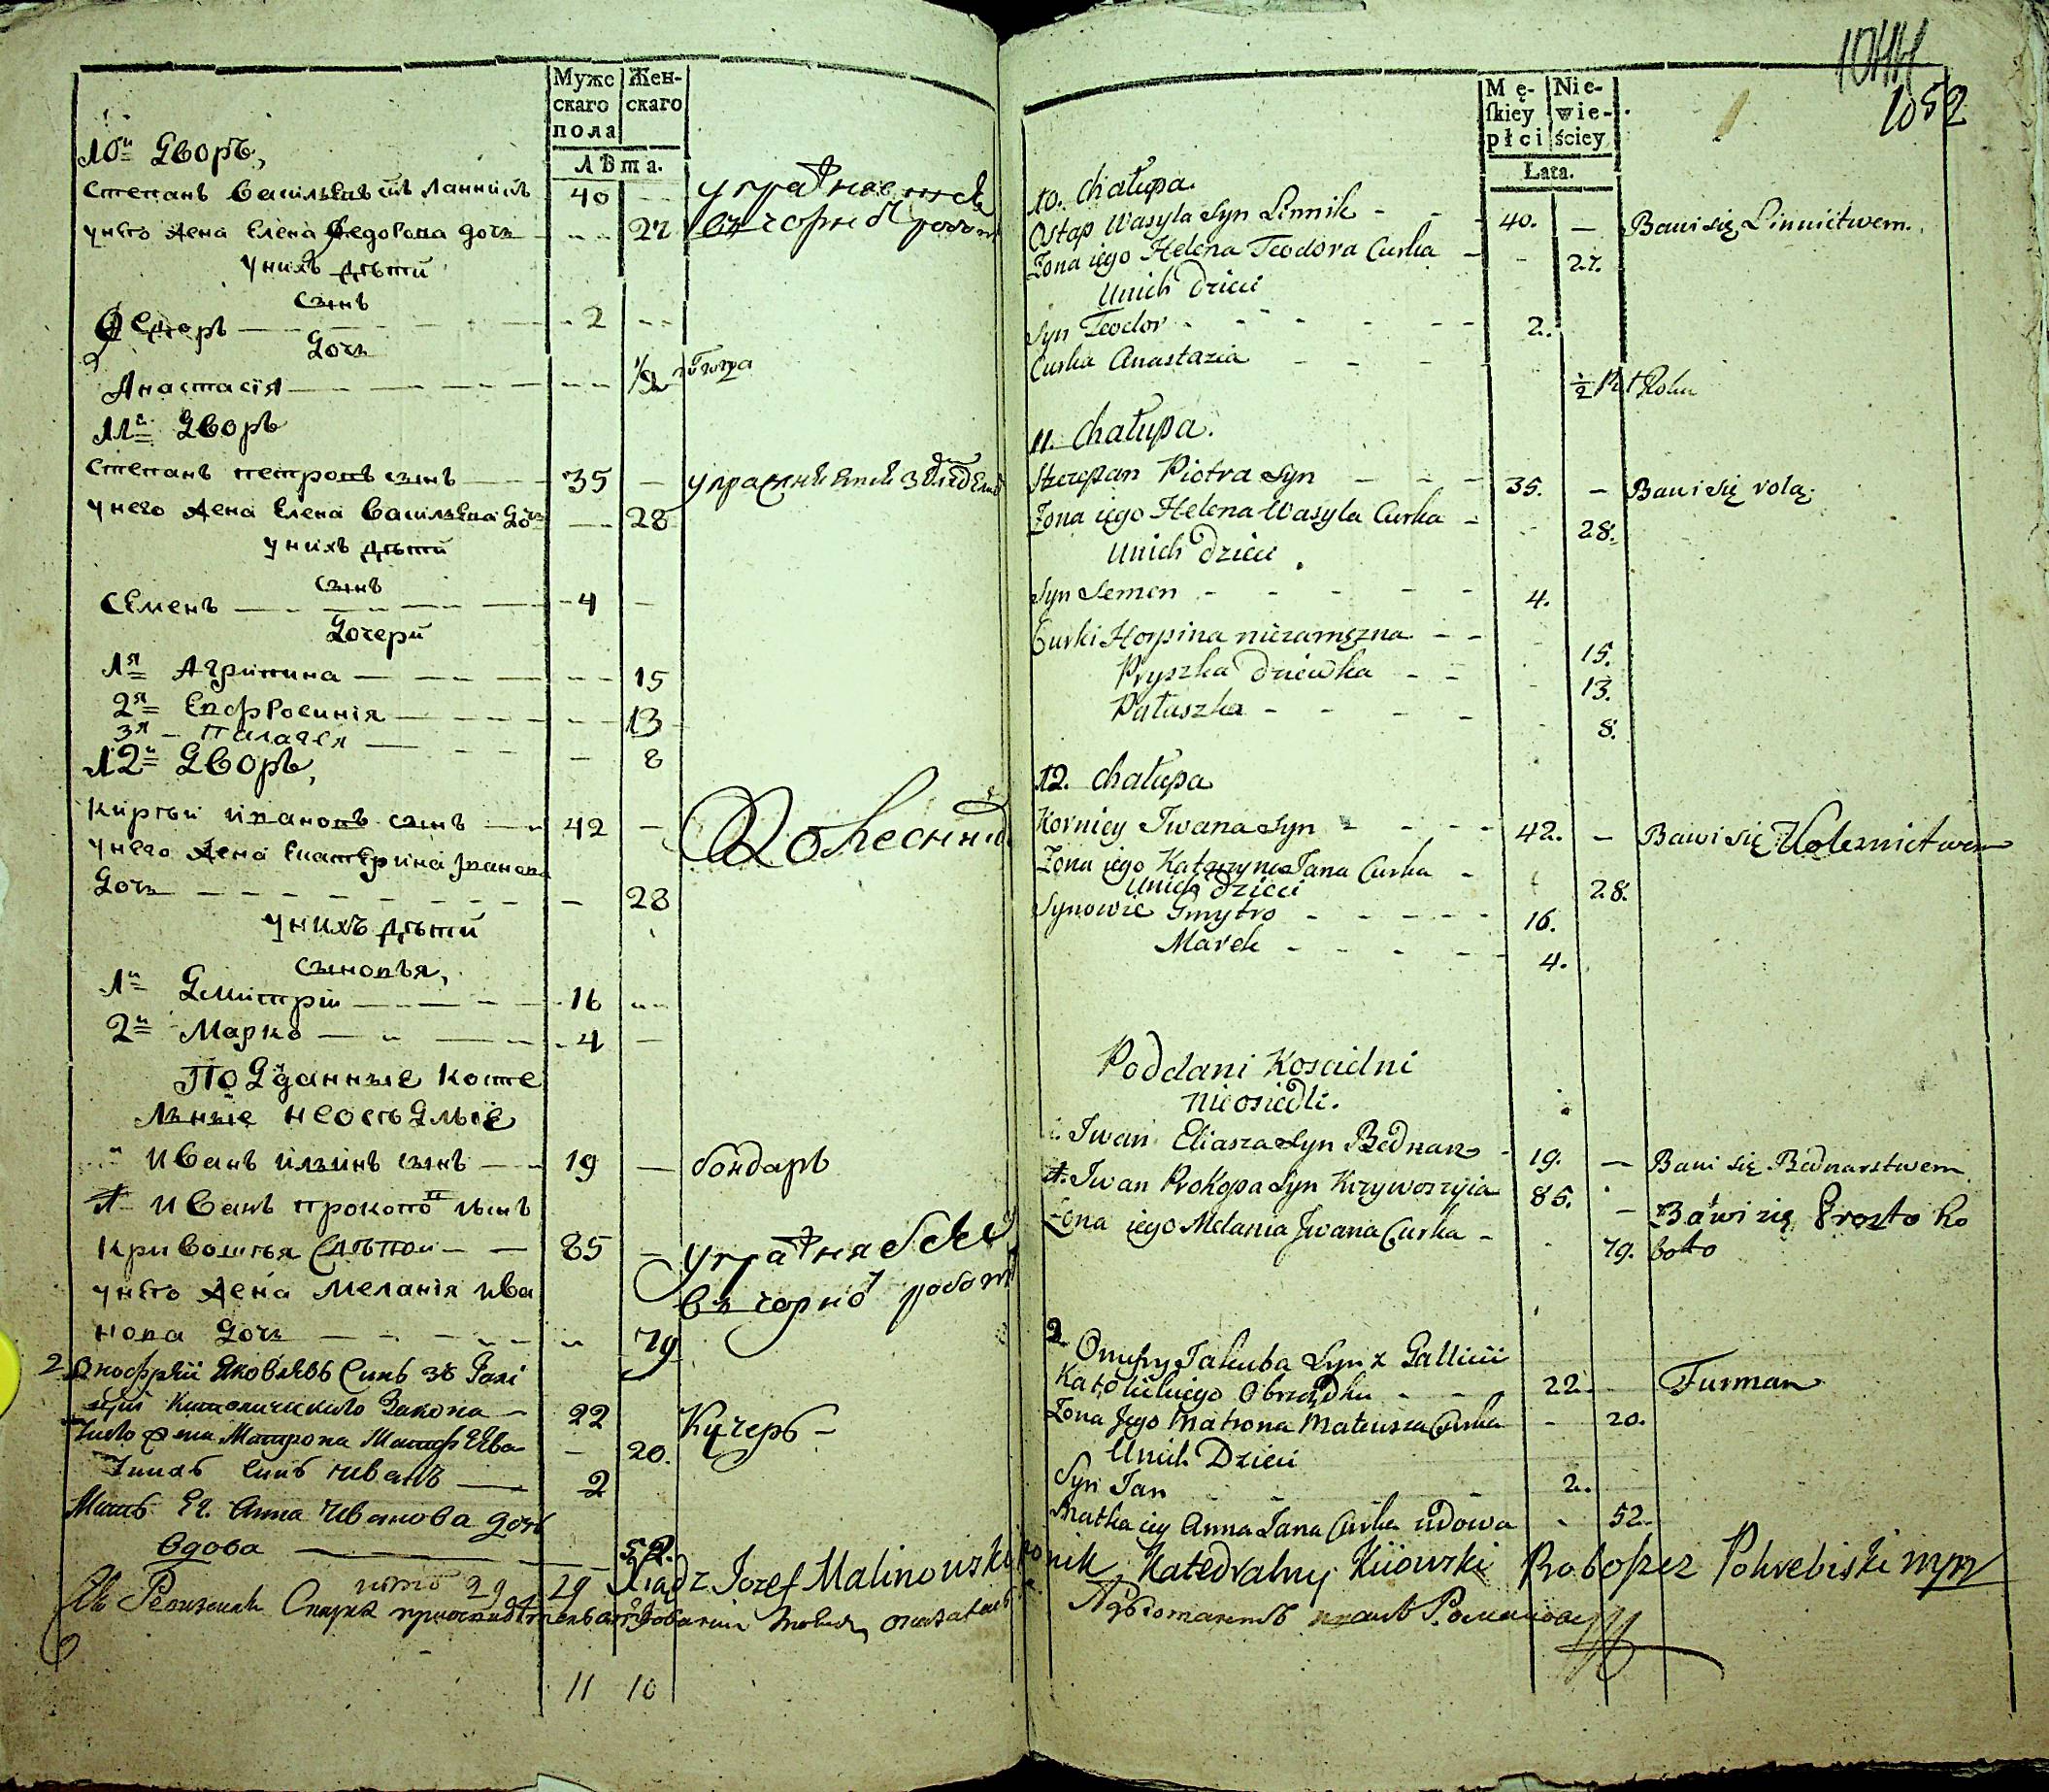 Муже
скаго
пола
Жен-
скаго
Лѣта.
10й Дворъ,
Степанъ Васильевъ снъ Линникъ 40 --
унего жена Елена Федорова дочь -- 27
унихъ дѣти
сынъ
Федоръ 2 --
Дочь
Анастасія -- 1/2 года
упражняется
въ чорной работ
11й Дворъ
Степанъ петровъ сынъ 35 — упражняется
унего жена Елена Васильева Дочь — 28
унихъ дѣти
сынъ
Семенъ 4 —
Дочери
1я Агрипина -- 15
2я Евфросинія -- 13
3я Палагея — 8
12й Дворъ,
Кирѣй ивановъ сынъ 42 —
унего жена Екатерина иванова
Дочь — 28
унихъ дѣти
сыновья,
1й Дмитрій 16 --
2й Марко 4 —
Подданные косте
льные неосѣдлые
Иванъ ильинъ сынъ 19 — бондарь
Иванъ прокоповъ сынъ
Кривошѣя Слѣпой 85 —
унего жена Меланія ива
нова Дочь 79
упражняется
въ чорно работ
2 Онофрій Яковлевъ Синъ зъ Галі
ціи Католическаго Закона 22 Кучеръ —
Унего жена Матрона Матфѣева — 20.
Унихъ синъ Иванъ 2
Мать Ег. Анна Иванова дочь
вдова 52.
итого 29 29
11 10
1044
1052
Mę-
ſkiey
płci
Nie-
wie-
ściey
Łata.
10. Chałupa.
Ostap Wasyla Syn Linnik 40. — Bawi się Linnictwem.
Żona iego Helena Teodora Curka 27.
Unich dzieci
Syn Teodor 2.
Curka Anastazia 1/2 Roku
11. Chałupa.
Szczepan Piotra Syn 35. — Bawi się rolą.
Żona iego Helena Wasyla Curka 28.
Unich dzieci
Syn Semen 4.
Curki Horpina niezamężna 15.
Pryszka dziewka 13.
Pałaszka 8.
12. Chałupa
Korniey Iwana Syn 42. — Bawi się Kołeznictwem
Żona iego Katarzyna Iana Curka 28.
Unich dzieci
Synowie Gmytro 16.
Marek 4.
Poddani Koscielni
nieosiedli.
Iwan Eliasza Syn Bednarz 19. — Bawi się Bednarstwem
Iwan Prokopa Syn Krzywoszyia 85. — Bawi się Prosto Ro
Żona iego Melania Iwana Curka 79. botto
2 Onufry Iakuba Syn z Gallicii
Katolickiego Obrządku 22. Furman
Żona Jego Matrona Mateusza Curka 20.
Unich Dzieci
Syn Ian 2.
Matka iey Anna Iana Curka wdowa 52.
Xiądz Iozef Malinowski Katedralny Kiiowski Pohrebiski